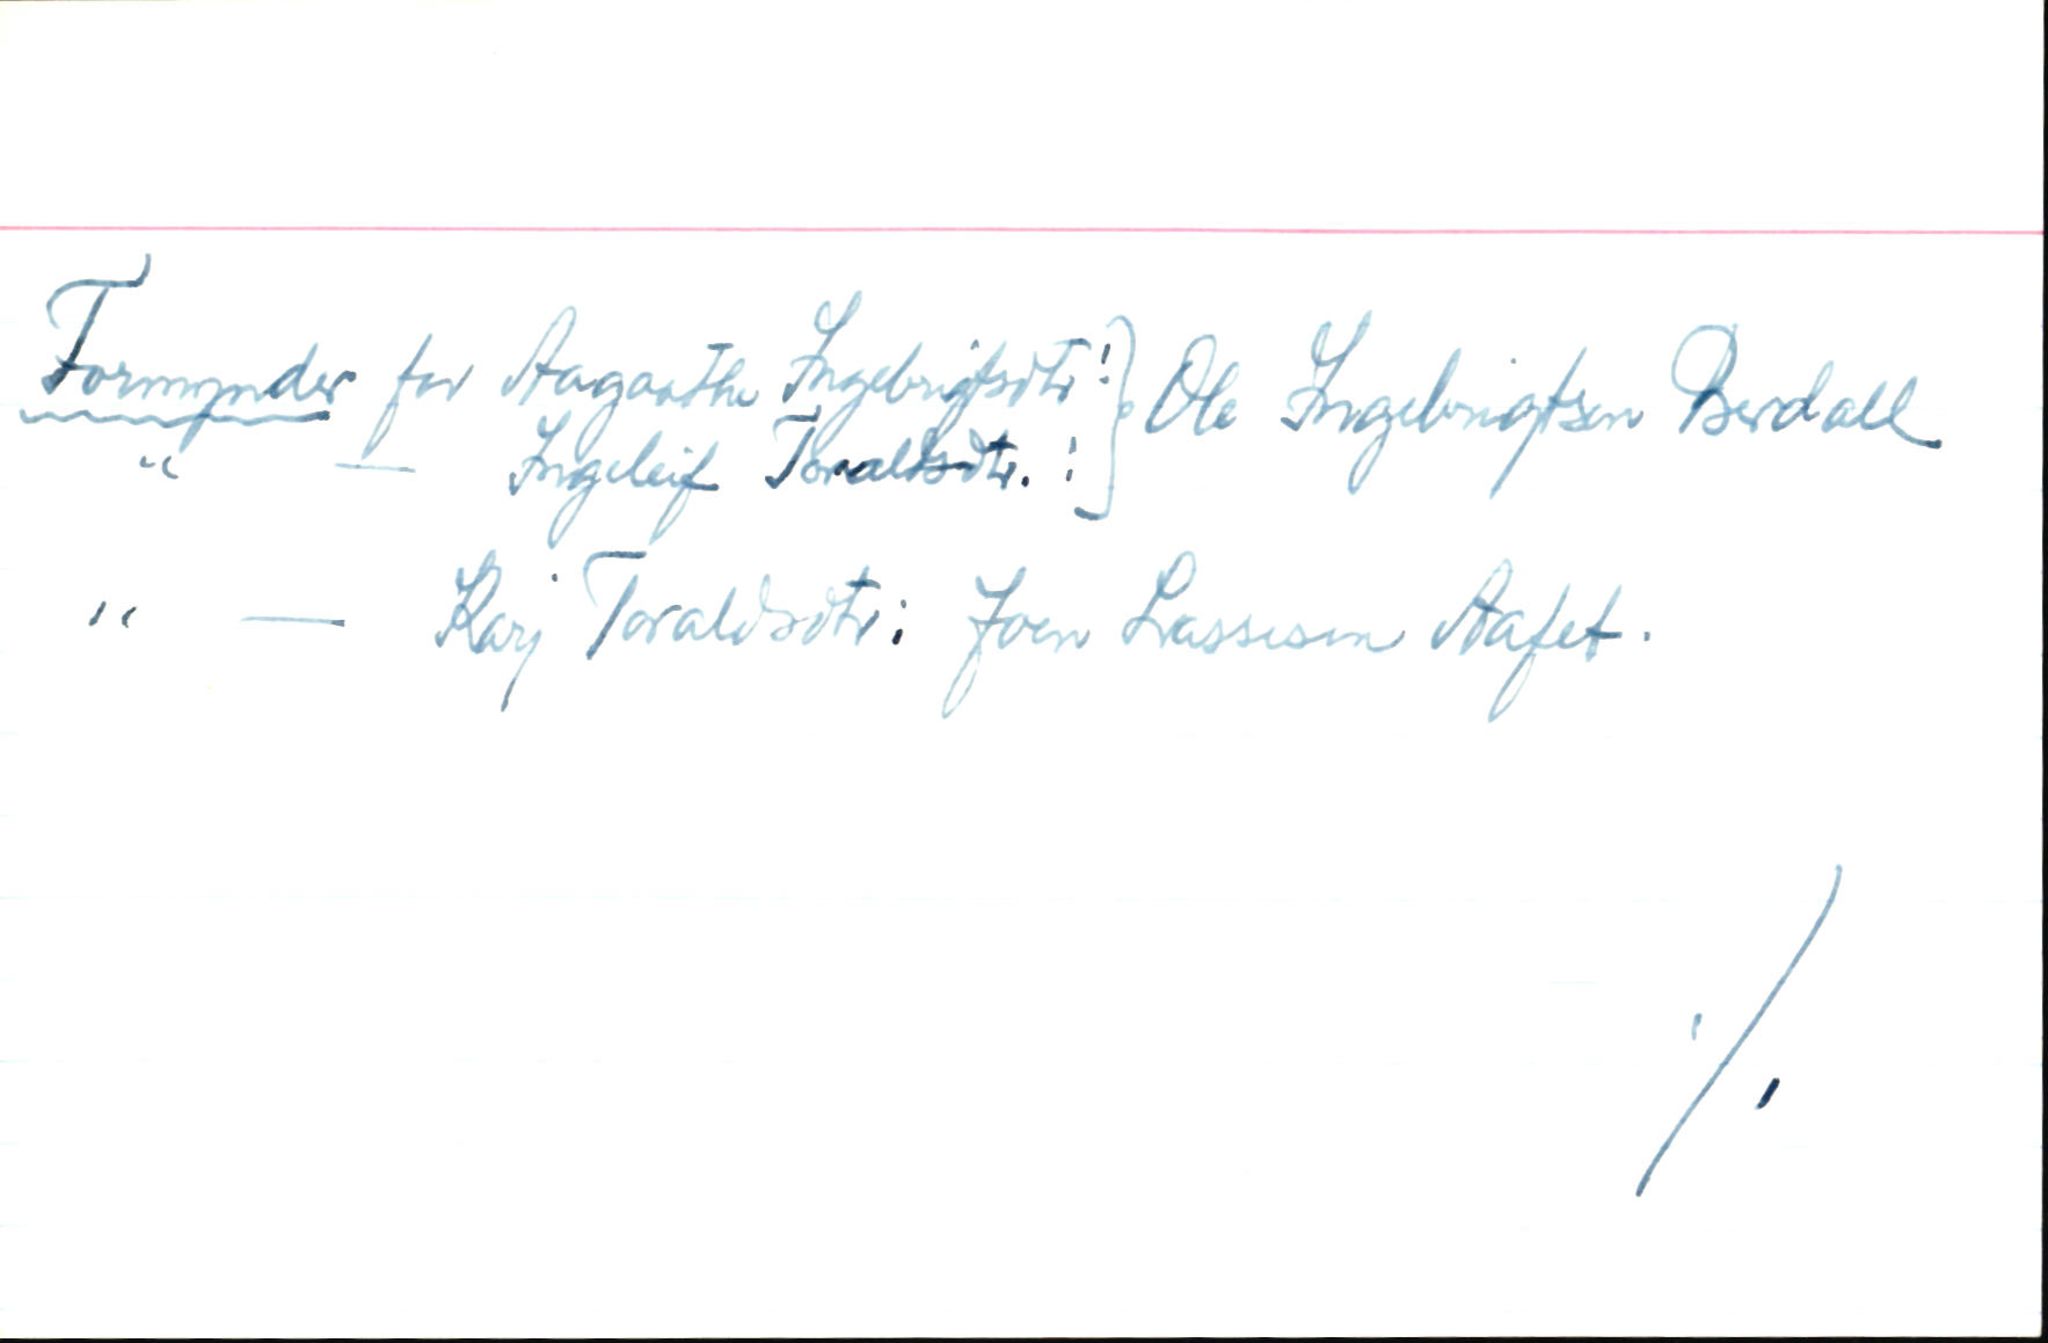 Formynder for Aagaathe Ingebrigtsdtr: } Ole Ingebrigtsen Berdall
" — Ingeleif Toraldsdtr. :
" — Karj Toraldsdtr: Joen Lassesen Aafet.
./.